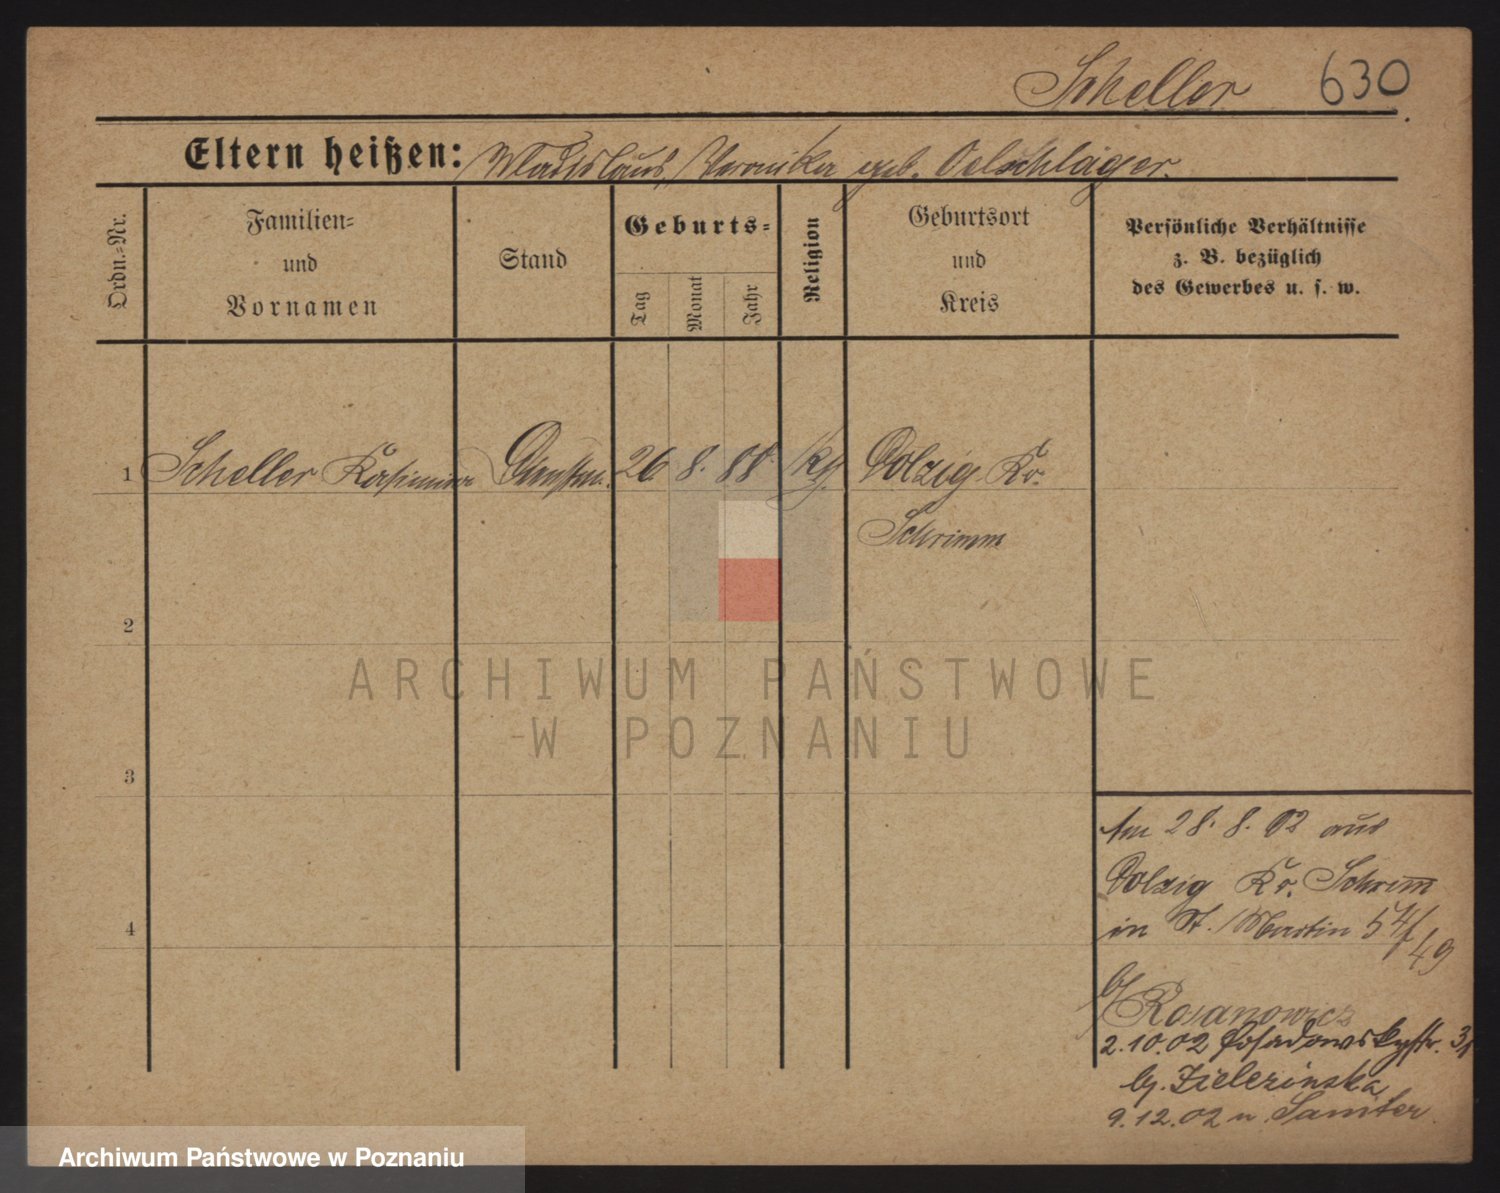 Scheller 630
Eltern heißen: Wladislaus, Veronika geb. Oelschläger.
Ordn.-Nr.
Familien-
und
Vornamen
Stand
Geburts-
Tag
Monat
Jahr
Religion
Geburtsort
und
Kreis
Persönliche Verhältnisse
z. B. bezüglich
des Gewerbes u. s. w.
1 Scheller Kasimira 26 8. 88 Dolzig Kr.
Schrimm
2
ARCHIWUM PAŃSTWOWE
W POZNANIU
3
Am 28. 8. 02 aus
Dolzig Kr. Schrim
4
in St. Martin 54/49
b/ Rosanowicz
2.10.02 Posadowskystr. 31
by. Zielezinska
9.12.02 n. Samter
Archiwum Państwowe w Poznaniu